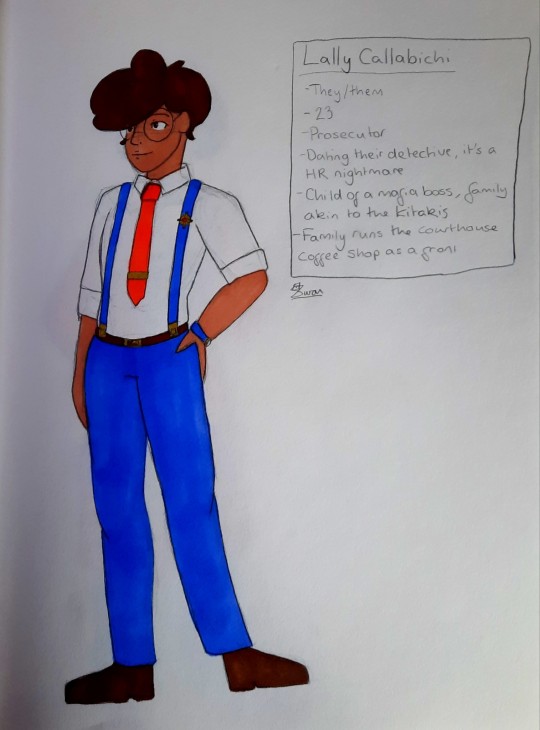 Lally Callabichi
-They/them
-23
-Prosecutor
-Dating their detective, it's a
HR nightmare
-Child of a mafia boss, family
akin to the Kitakis
-Family runs the courthouse
coffee shop as a front